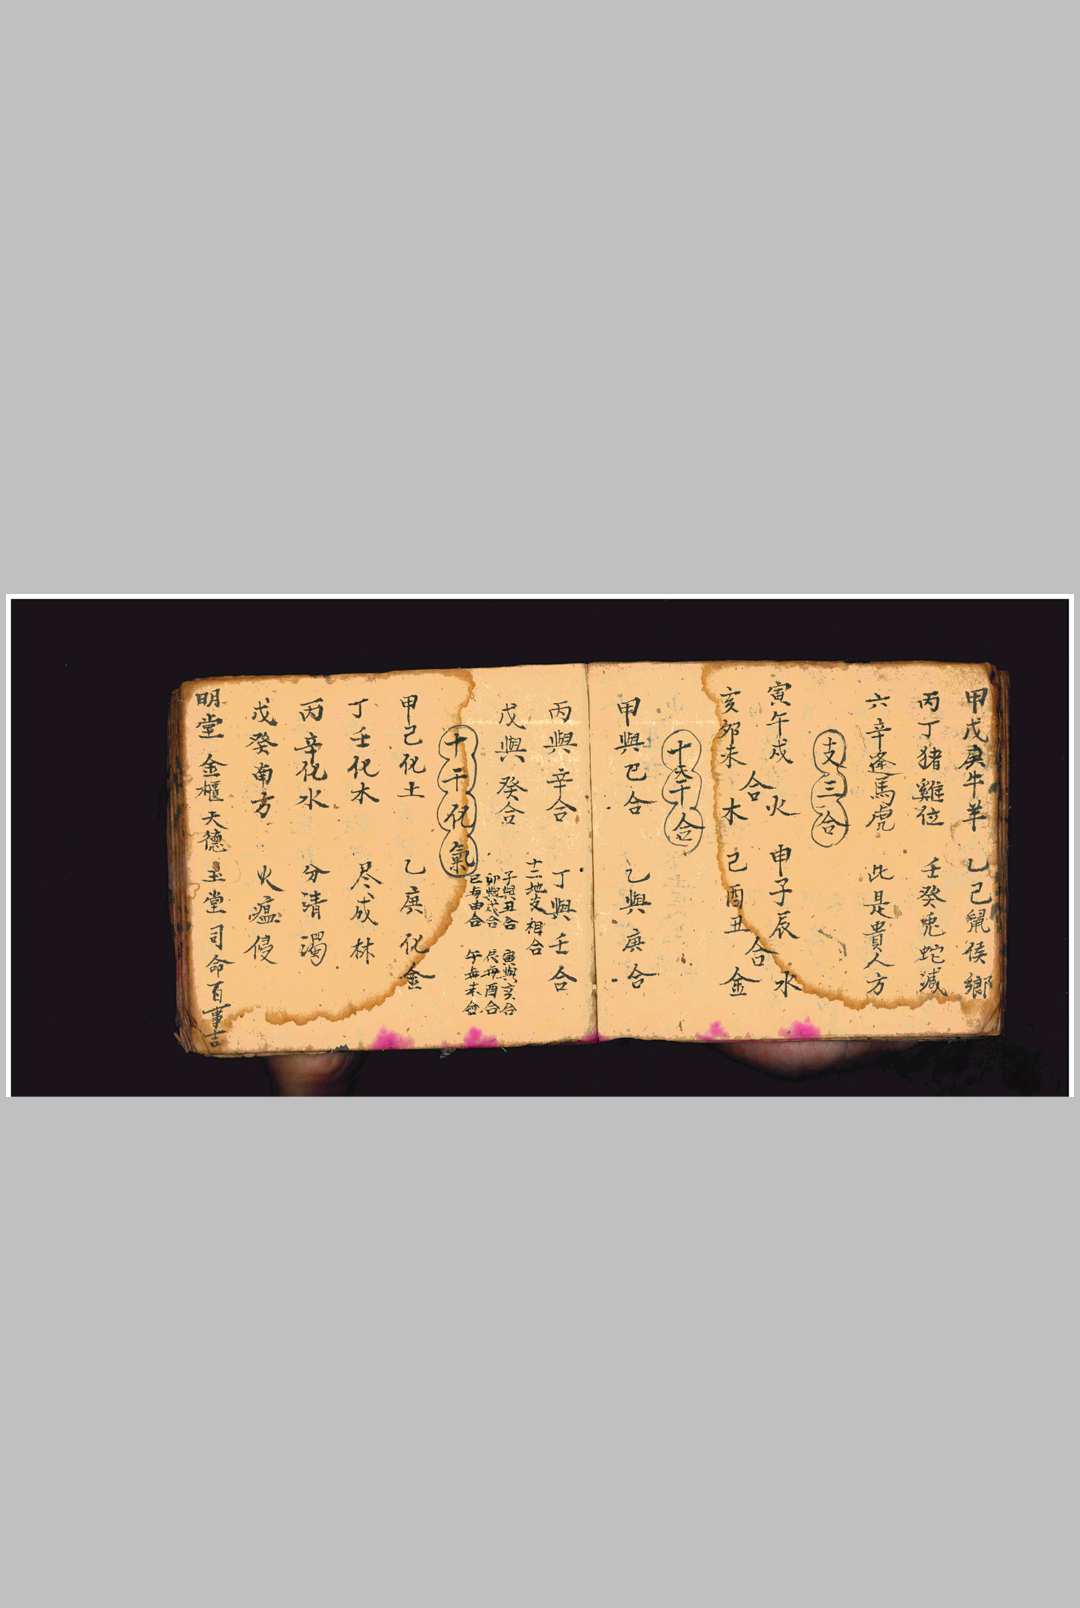 甲戊庚牛羊 乙己鼠侯鄉
丙丁猪雞位 壬癸兎蛇減
六辛逢馬虎 此是貴人方
支三合
寅午戌合火 申子辰合水
亥卯未合木 己酉丑合金
十天干合
甲與己合 乙與庚合
丙與辛合 丁與壬合
戊與癸合
十二地支相合
子與丑合 寅與亥合
卯與戌合 辰與酉合
巳与申合 午与未合
十干化氣
甲己化土 乙庚化金
丁壬化木 尽成林
丙辛化水 分清濁
戊癸南方 火瘟侵
明堂 金櫃 天德 玉堂 司命 百事吉